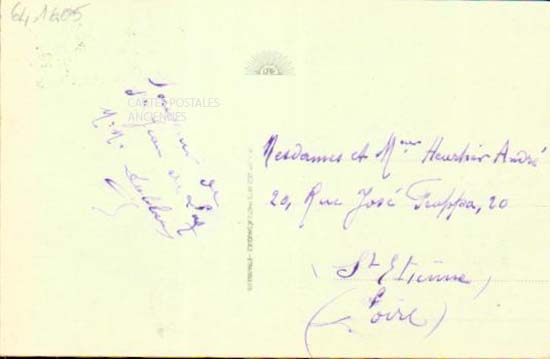 641605
CARTES POSTALES
ANCIENNES
Souvenir de
St Jean de Luz
Mesdames et Mr Heurtier André
20, Rue José Frappa, 20
St Etienne
(Loire)